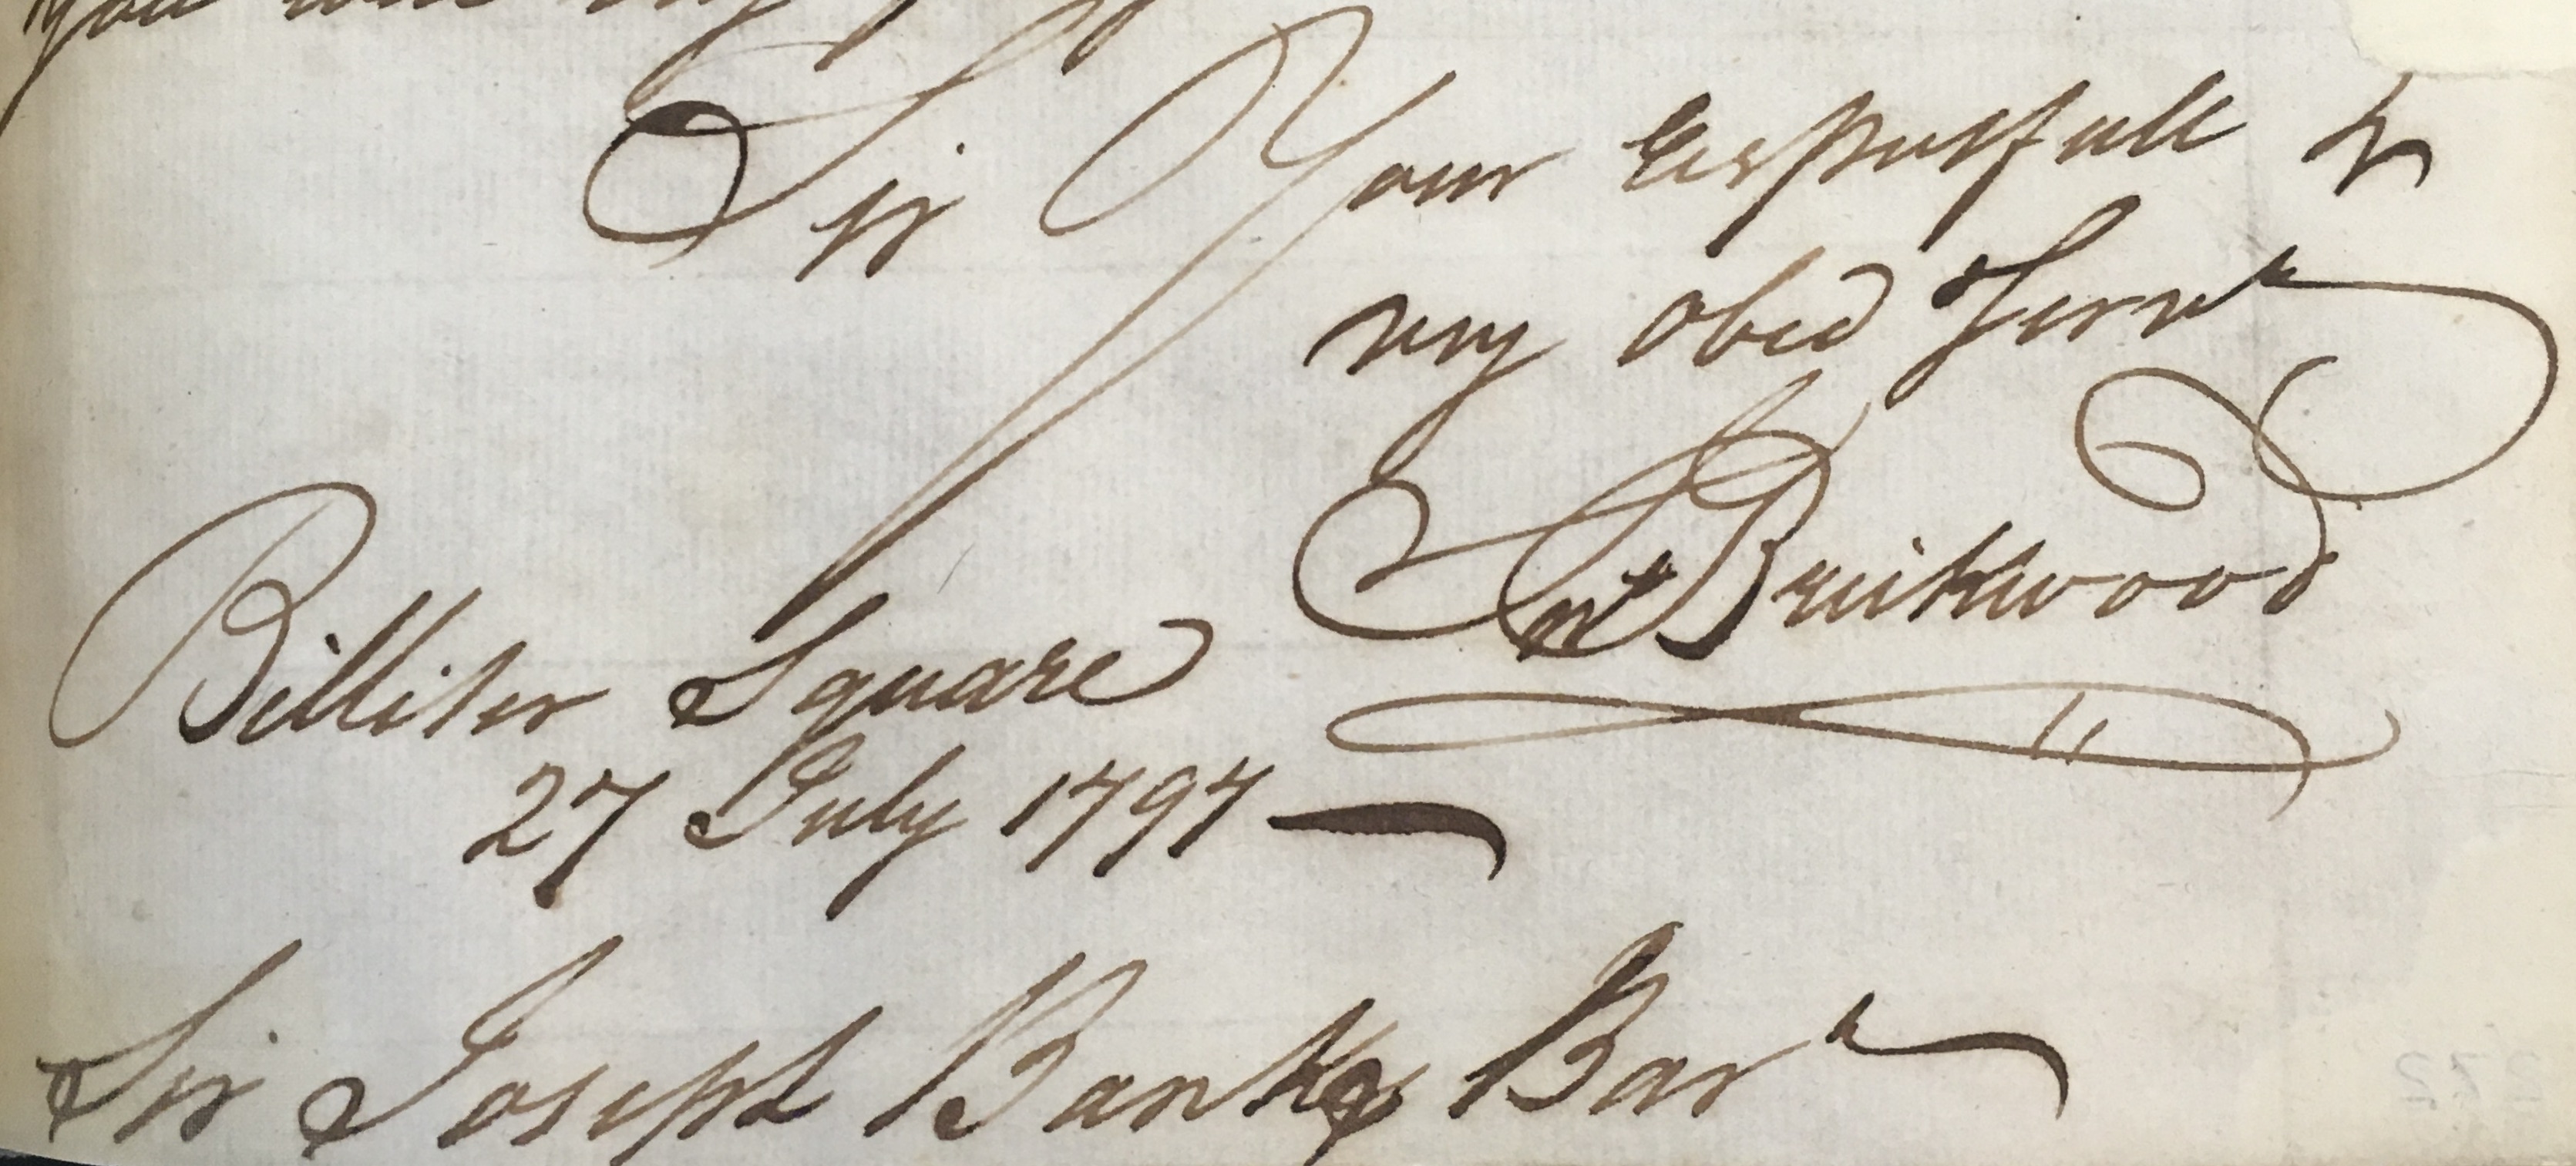 you
Sir Your Respectfull &
very obed Servt
Brickwood
Billiter Square
27 July 1797
Sir Joseph Banks Bart
272